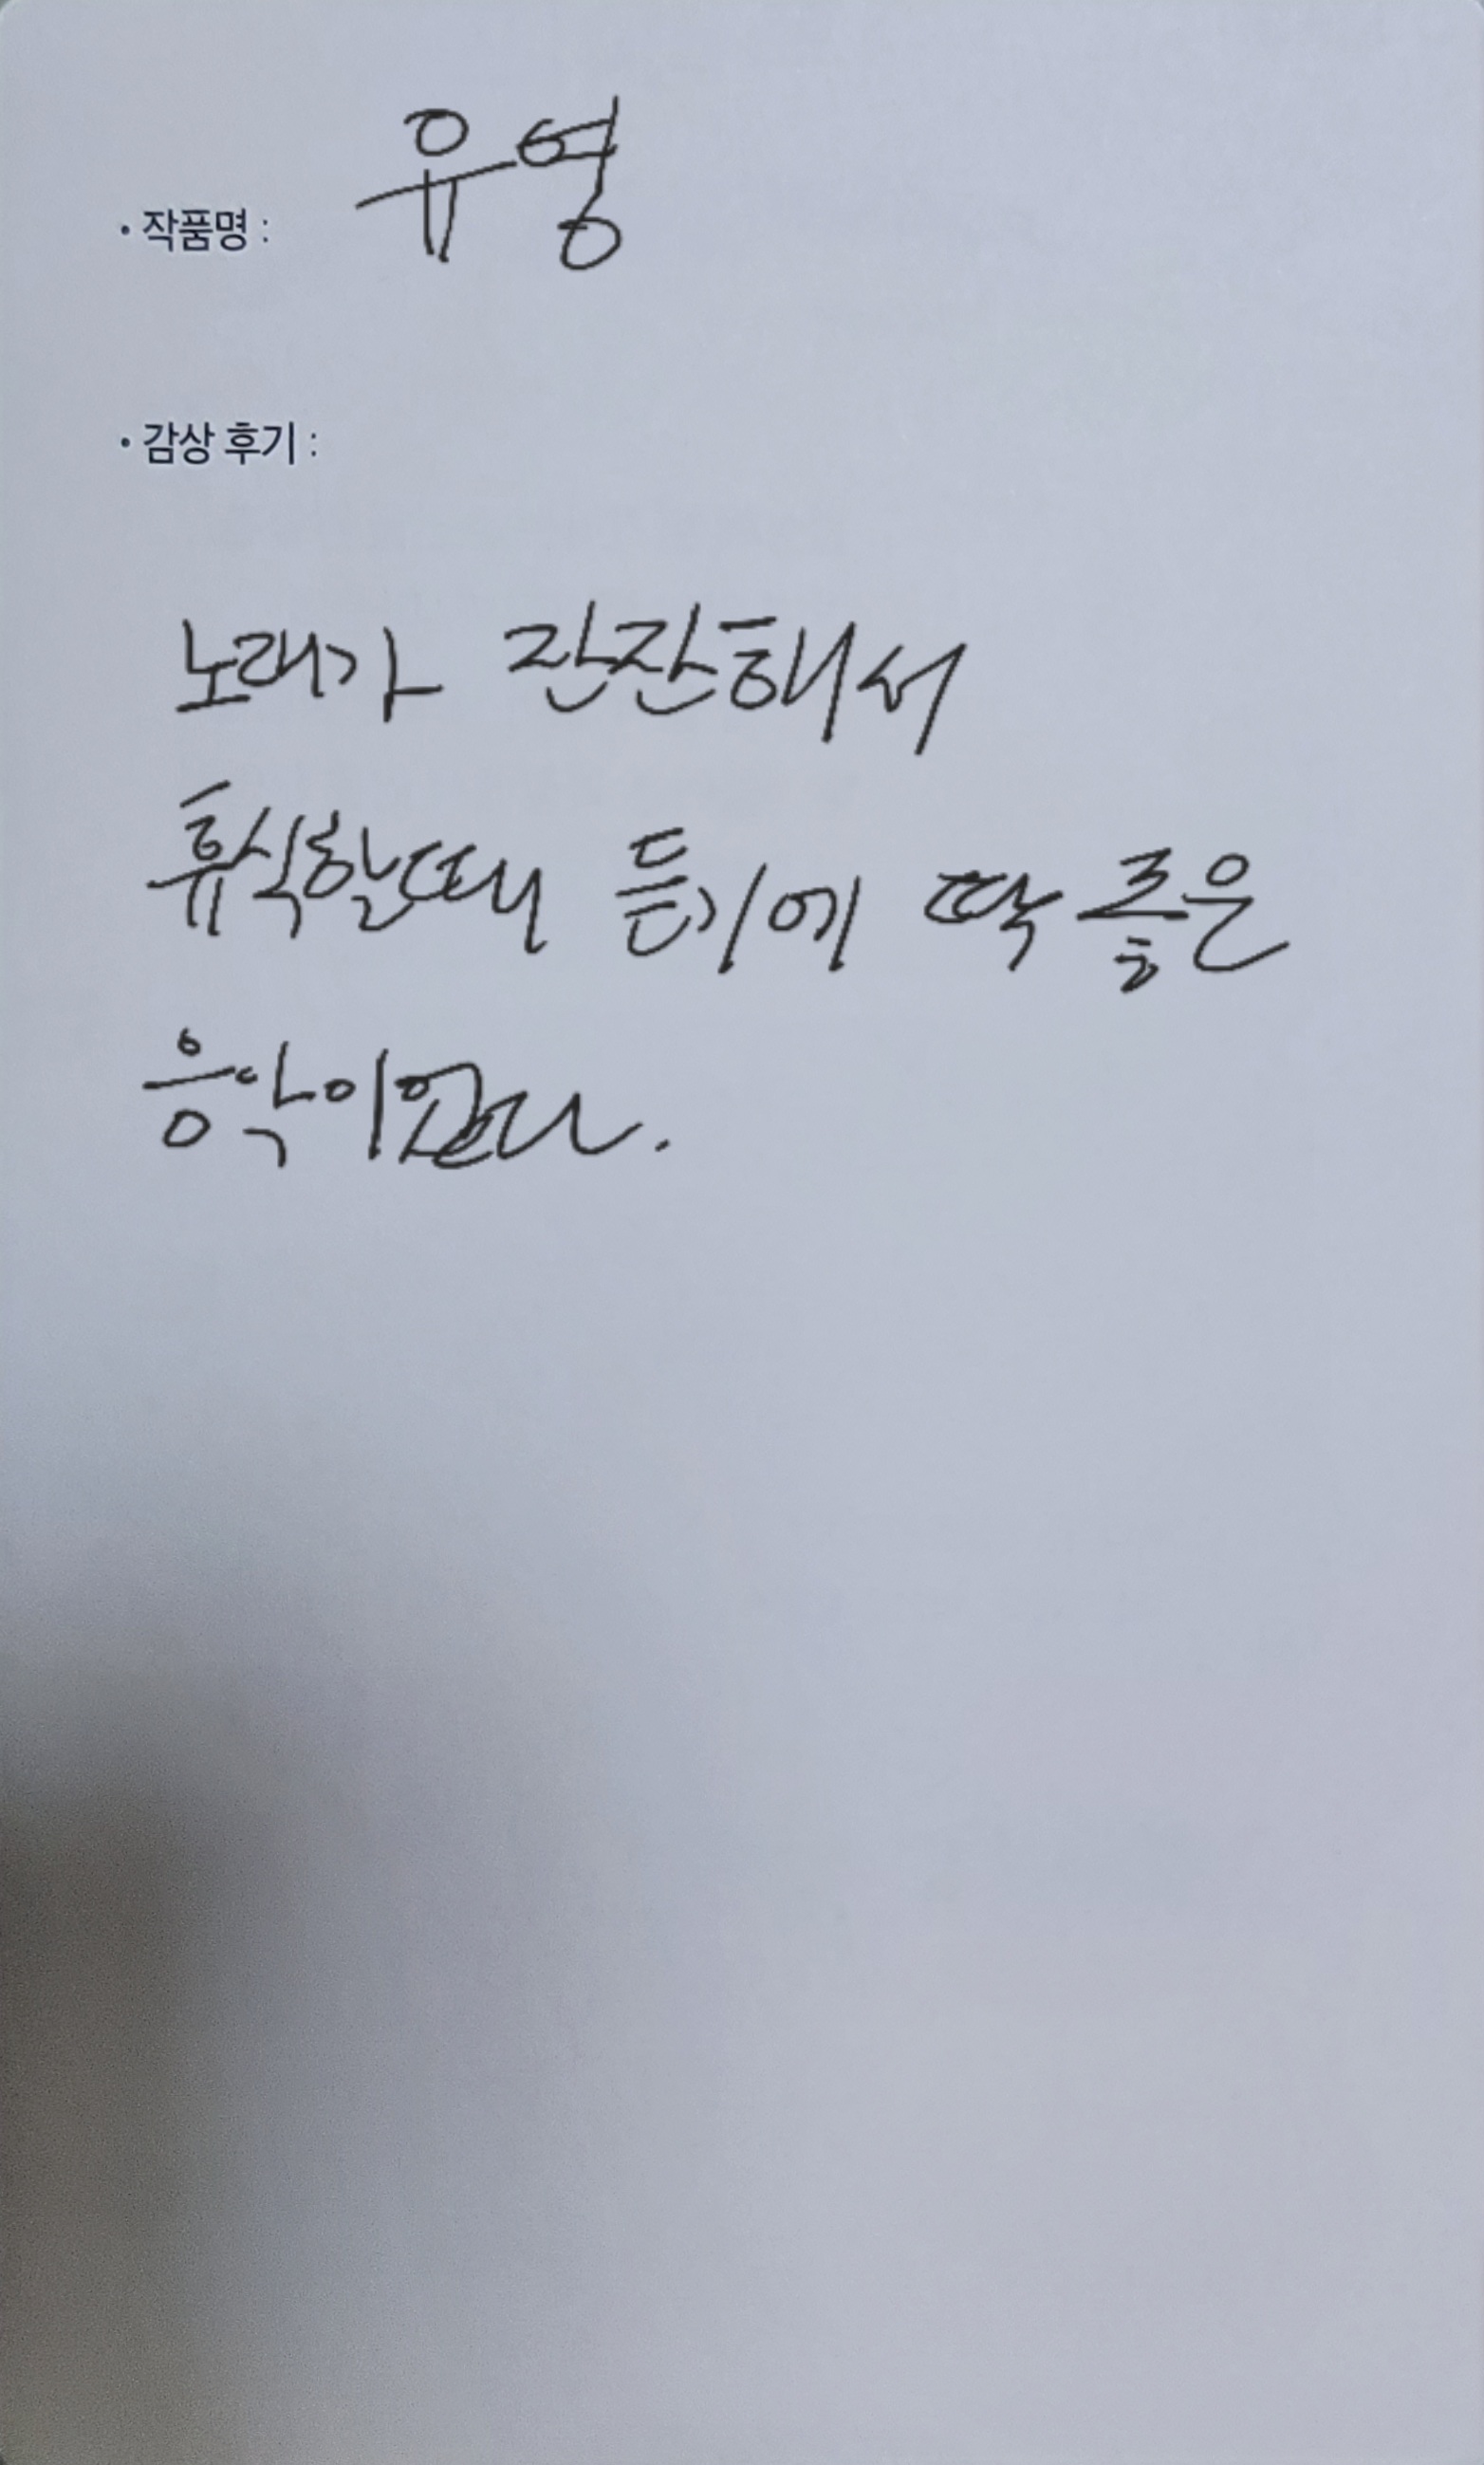 • 작품명 : 유영
• 감상 후기 :
노래가 잔잔해서
휴식할때 듣기에 딱 좋은
음악이였다.